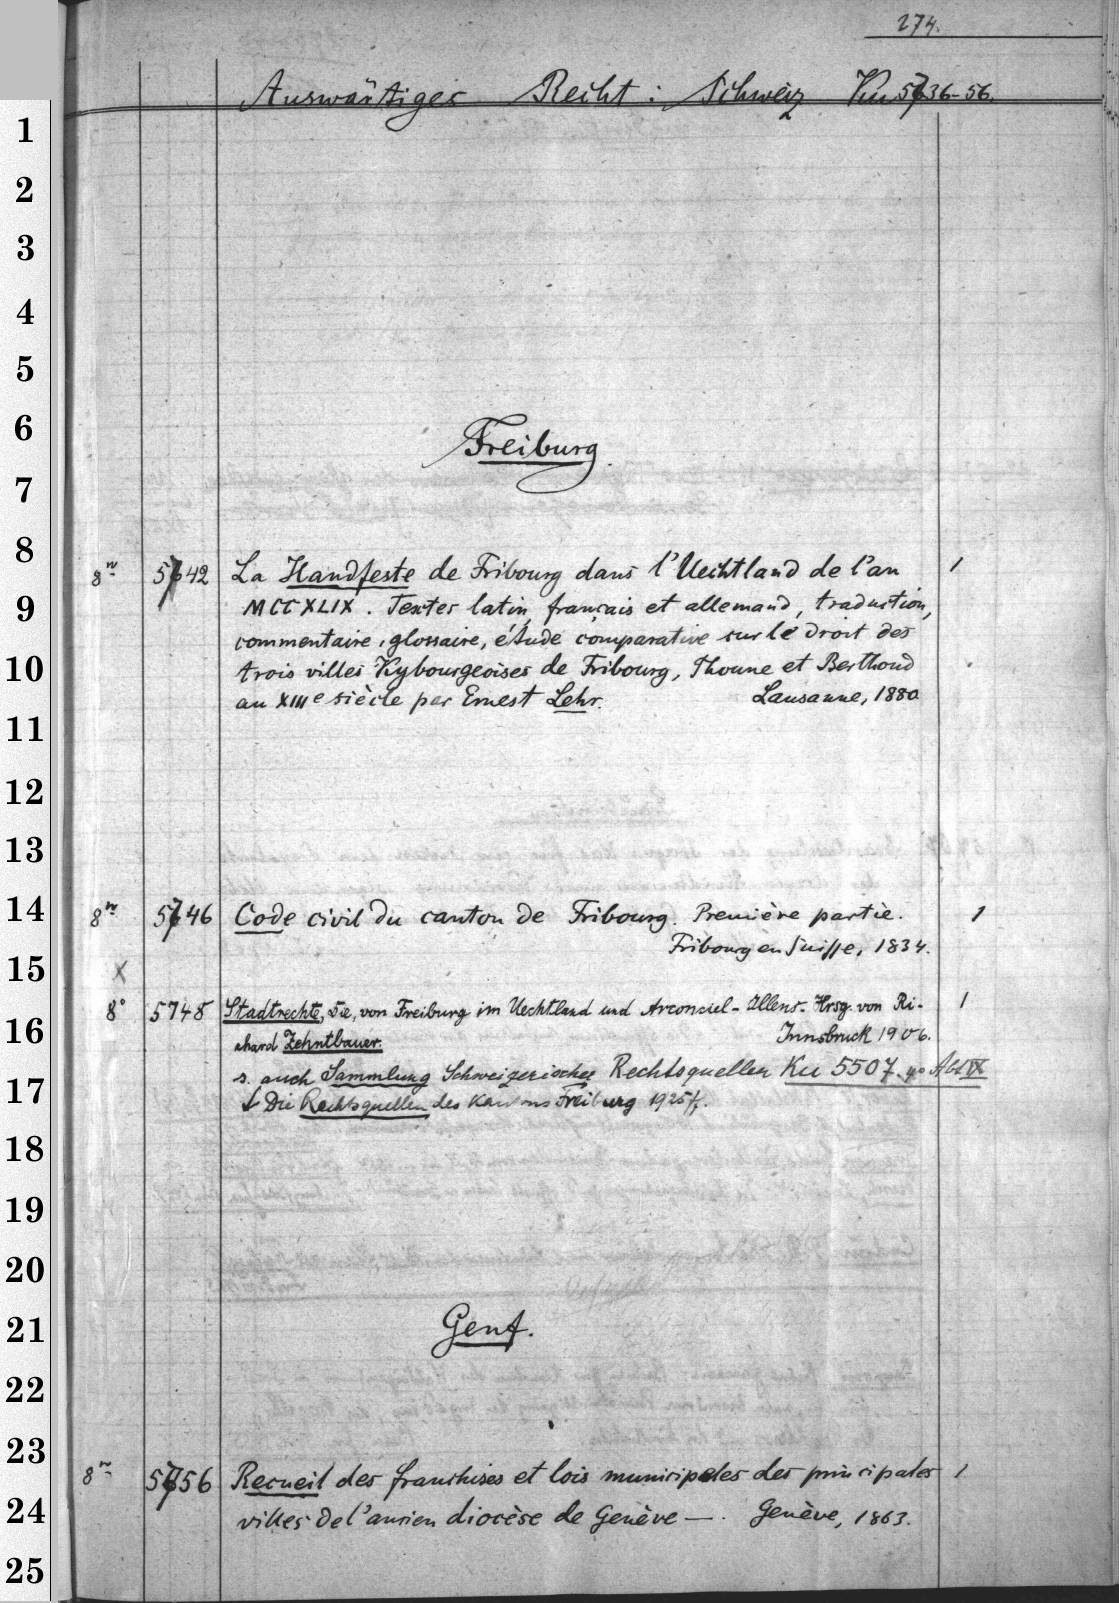 274.
Auswärtiges Recht: Schweiz Ku 5736-56.
1
2
3
4
5
6
Freiburg.
7
8
8º 5742 La Handfeste de Fribourg dans l'Uechtland de l'an 1
9 MCCXLIX. Textes latin, français et allemand, traduction,
commentaire, glossaire, étude comparative sur le droit des
10 trois villes Kybourgeoises de Fribourg, Thoune et Berthoud
au XIIIe siècle par Ernest Lehr. Lausanne, 1880
11
12
13
14 8º 5746 Code civil du canton de Fribourg. Première partie. 1
Fribourg en Suisse, 1834.
15 X
8° 5748 Stadtrechte, Die, von Freiburg im Uechtland und Arconciel-Illens. Hrsg. von Ri- 1
16 chard Zehntbauer. Innsbruck 1906.
s. auch Sammlung Schweizerischer Rechtsquellen Ku 5507 Abt IX
17 Die Rechtsquellen des Kantons Freiburg 1925ff.
18
19
20
21 Genf.
22
23
8º 5756 Recueil des franchises et lois municipales des principales 1
24 villes de l'ancien diocèse de Genève —. Genève, 1863.
25